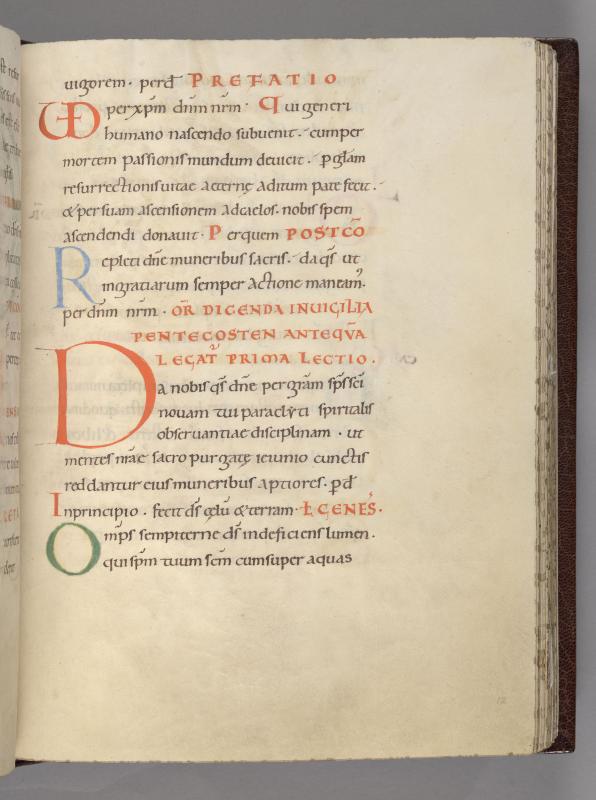 uigorem · perd̄ PREFATIO
VD perxp̄m dn̄m nr̄m · Qui generi
humano nascendo subuenit · cumper
mortem passionis mundum deuicit · p gl̄am
resurrectionis uitae aeternę aditum pate fecit ·
& per suam ascensionem ad caelos · nobis spem
ascendendi donauit · Per quem POSTCŌ
Repleti dn̄e muneribus sacris · da qs̄ ut
in gratiarum semper actione maneam᾽
per dn̄m nr̄m · OR̄ DICENDA IN UIGILIA
PENTECOSTEN ANTEQVA
LEGAT̄ PRIMA LECTIO .
Da nobis qs̄ dn̄e per gr̄am sp̄s sc̄i
nouam tui paraclyti spiritalis
obseruantiae disciplinam · ut
mentes nr̄ae sacro purgatę ieiunio cunctis
reddantur eius muneribus aptiores · p d̄
In principio · fecit ds̄ cęlu & terram · Ł GENES̄ ·
Om̄ps sempiterne ds̄ indeficiens lumen ·
qui sp̄m tuum sc̄m cum super aquas